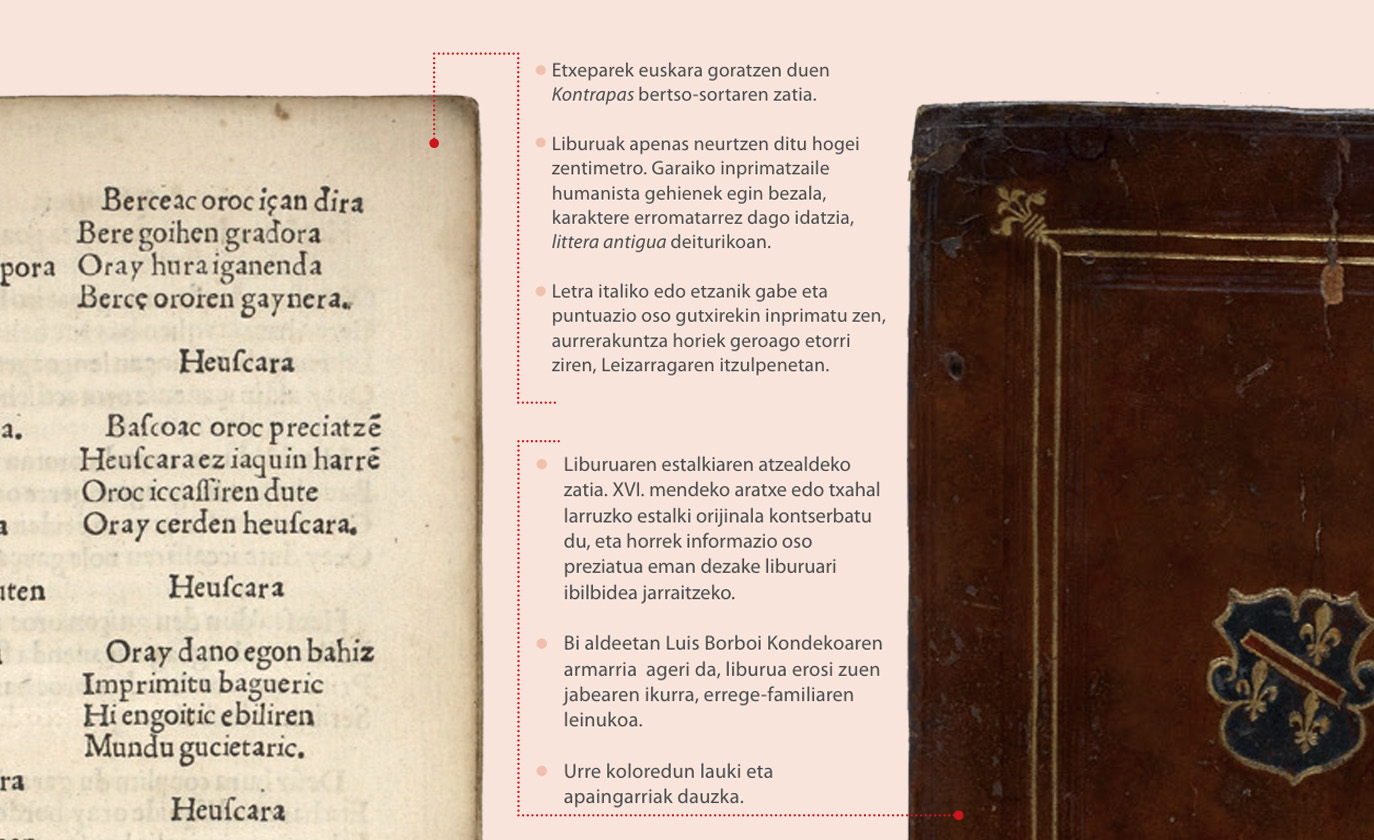 Berceac oroc içan dira
Bere goihen gradora
pora Oray hura iganenda
Bercę ororen gaynera.
Heuſcara
a. Baſcoac oroc preciatzē
Heuſcara ez iaquin harrē
Oroc iccaſſiren dute
Oray cerden heuſcara.
uten Heuſcara
Oray dano egon bahiz
Imprimitu bagueric
Hi engoitic ebiliren
Mundu gucietaric.
ra
Heuſcara
Etxeparek euskara goratzen duen
Kontrapas bertso-sortaren zatia.
Liburuak apenas neurtzen ditu hogei
zentimetro. Garaiko inprimatzaile
humanista gehienek egin bezala,
karaktere erromatarrez dago idatzia,
littera antigua deiturikoan.
Letra italiko edo etzanik gabe eta
puntuazio oso gutxirekin inprimatu zen,
aurrerakuntza horiek geroago etorri
ziren, Leizarragaren itzulpenetan.
Liburuaren estalkiaren atzealdeko
zatia. XVI. mendeko aratxe edo txahal
larruzko estalki orijinala kontserbatu
du, eta horrek informazio oso
preziatua eman dezake liburuari
ibilbidea jarraitzeko.
Bi aldeetan Luis Borboi Kondekoaren
armarria ageri da, liburua erosi zuen
jabearen ikurra, errege-familiaren
leinukoa.
Urre koloredun lauki eta
apaingarriak dauzka.